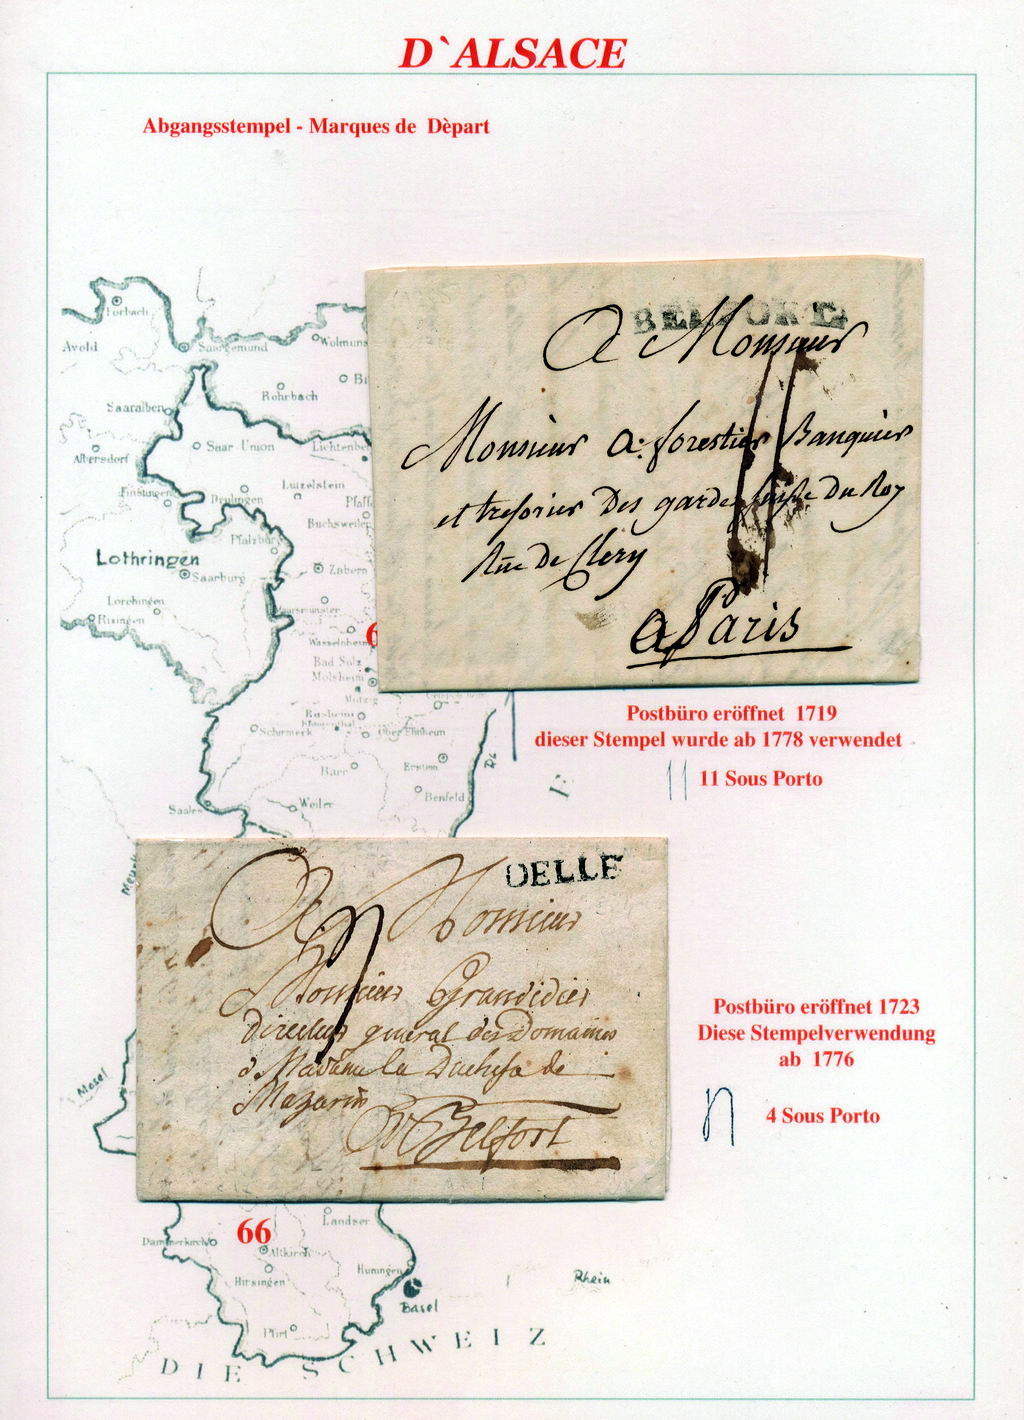 D`ALSACE
Abgangsstempel - Marques de Dèpart
Forbach
Avold
Saargemund
Wolmuns
Rohrbach
Bi
Saaralben
Saar Union
Lichtenbe
Albersdorf
Finstingen
Drulingen
Lützelstein
Pfaff
Buchsweiler
Pfalzburg
Lothringen
Saarburg
Zabern
Lörchingen
Rixingen
Maursmünster
Wasselnheim
Bad Sulz
Molsheim
Mutzig
Rosheim
Schirmeck
Ober Ehnheim
Barr
Erstein
Benfeld
Saales
Weiler
6
BELFORT
A Monsieur
Monsieur A: forestier Banquier
et tresorier Des gardes suisse Du Roy
Rüe De Clery
a Paris
Postbüro eröffnet 1719
dieser Stempel wurde ab 1778 verwendet
11 Sous Porto
DELLE
A Monsieur
Monsieur Grandidier
Directeur general des Domaines
de Madame la Duchesse de
Mazarin
A Belfort
Postbüro eröffnet 1723
Diese Stempelverwendung
ab 1776
4 Sous Porto
Mosel
66
Landser
Dammerkirch
Altkirch
Hirsingen
Huningen
Basel
Rhein
Pfirt
DIE SCHWEIZ